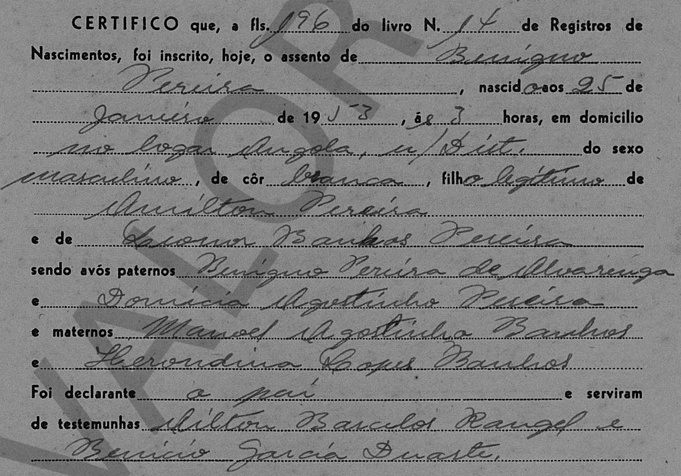 CERTIFICO que, a fls. 196 do livro N. 14 de Registros de
Nascimentos, foi inscrito, hoje, o assento de Benigno
Pereira, nascido aos 25 de
Janeiro de 1953, ás 3 horas, em domicilio
no logar Angola, n/ Dist. do sexo
masculino, de côr branca, filho legítimo de
Amilton Pereira
e de Leonor Banhos Pereira
sendo avós paternos Benigno Pereira de Alvarenga
e Domicia Agostinho Pereira
e maternos Manoel Agostinho Banhos
e Herondina Lopes Banhos
Foi declarante o pai e serviram
de testemunhas Milton Barcelos Rangel e
Benicio Garcia Duarte.
VALOR